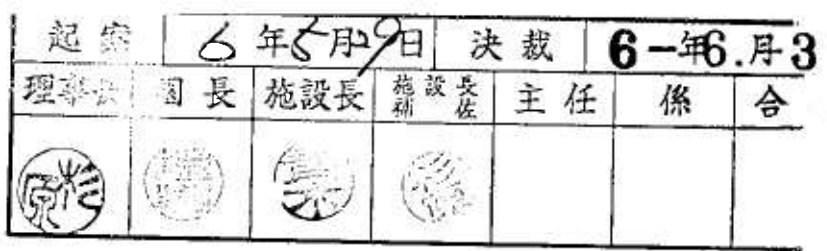 起案 6年5月29日 決裁 6-年6.月3
理事長 園長 施設長 施設長補佐 主任 係 合
杉原